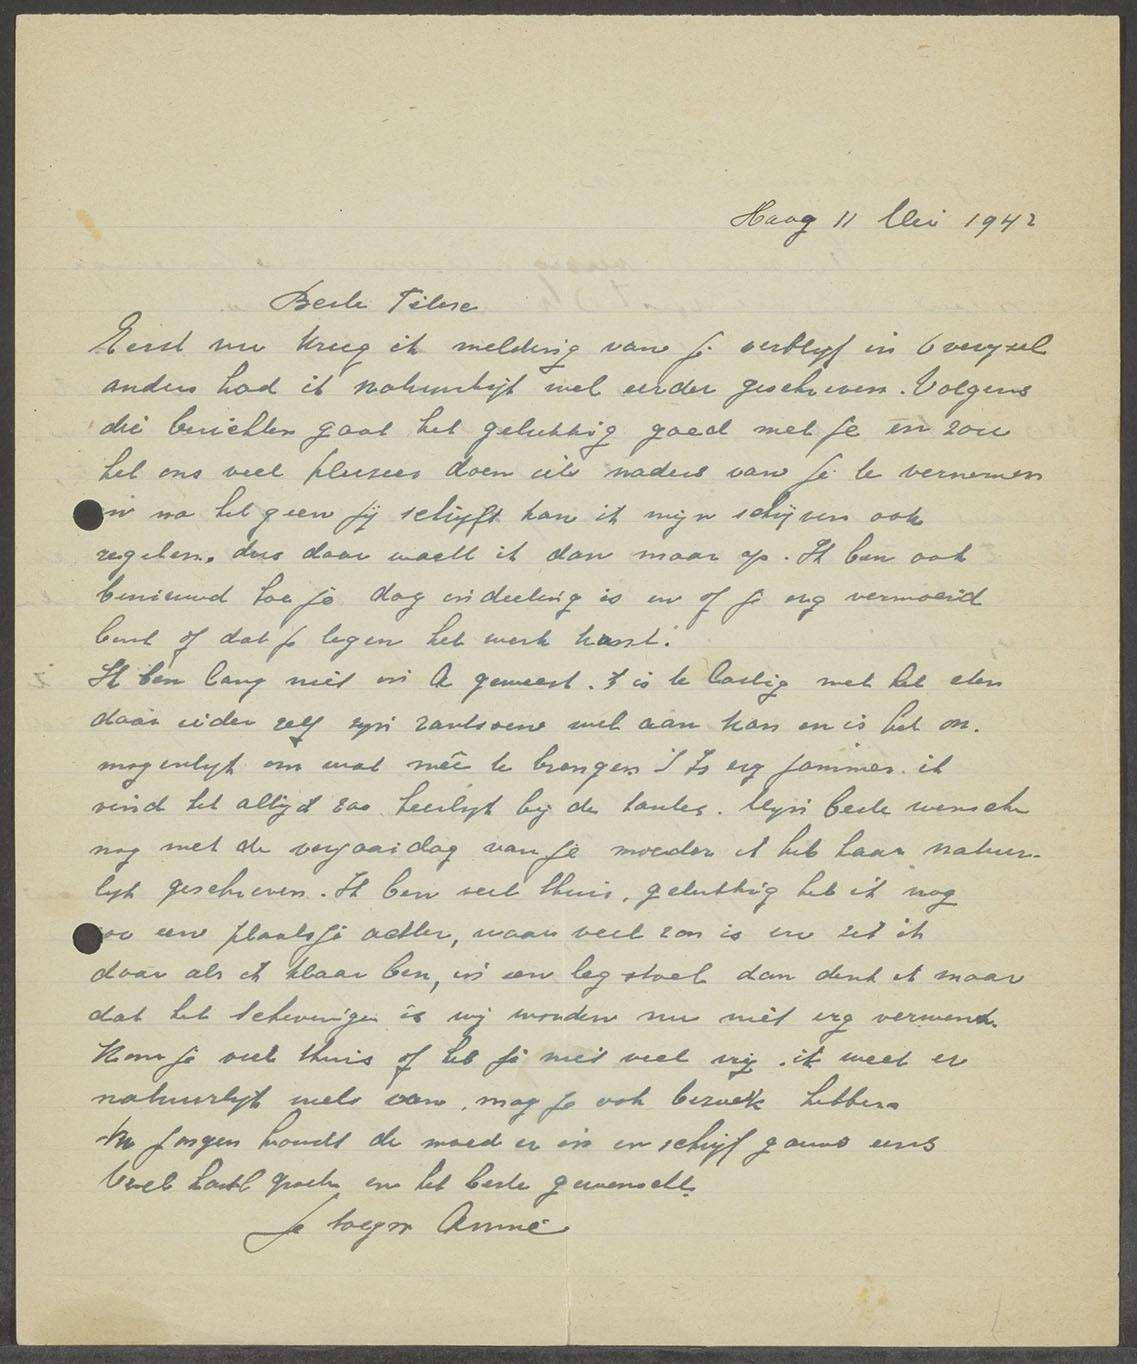 Haag 11 Mei 1942
Beste
Eerst nu kreeg ik melding van je verblijf in Overysel
anders had ik natuurlijk wel eerder geschreven. Volgens
die berichten gaat het gelukkig goed met je en zou
het ons veel plezier doen iets naders van je te vernemen
en na het geen jij schrijft kan ik mijn schrijven ook
regelen. dus daar wacht ik dan maar op. Ik ben ook
benieuwd hoe je dag indeeling is en of je erg vermoeid
bent of dat je tegen het werk kunt.
Ik ben lang niet in A geweest. 't is te lastig met het eten
daar ieder zelf zijn rantsoen wel aan kan en is het on.
mogenlijk om wat mêe te brengen 't Is erg jammer. ik
vind het altijd zoo heerlijk bij de tantes. Mijn beste wensche
nog met de verjaardag van je moeder ik heb haar natuur-
lijk geschreven. Ik ben veel thuis, gelukkig heb ik nog
zoo een plaatsje achter, waar veel zon is en zit ik
daar als ik klaar ben, in een leg stoel dan denk ik maar
dat het Scheveningen is wij worden nu niet erg verwend.
Kom je veel thuis of heb je niet veel vrij. ik weet er
natuurlijk niets van. mag je ook bezoek hebben
Nu jongen houdt de moed er in en schrijf gauw eens
Veel hartl groeten en het beste gewenscht.
Je Annie